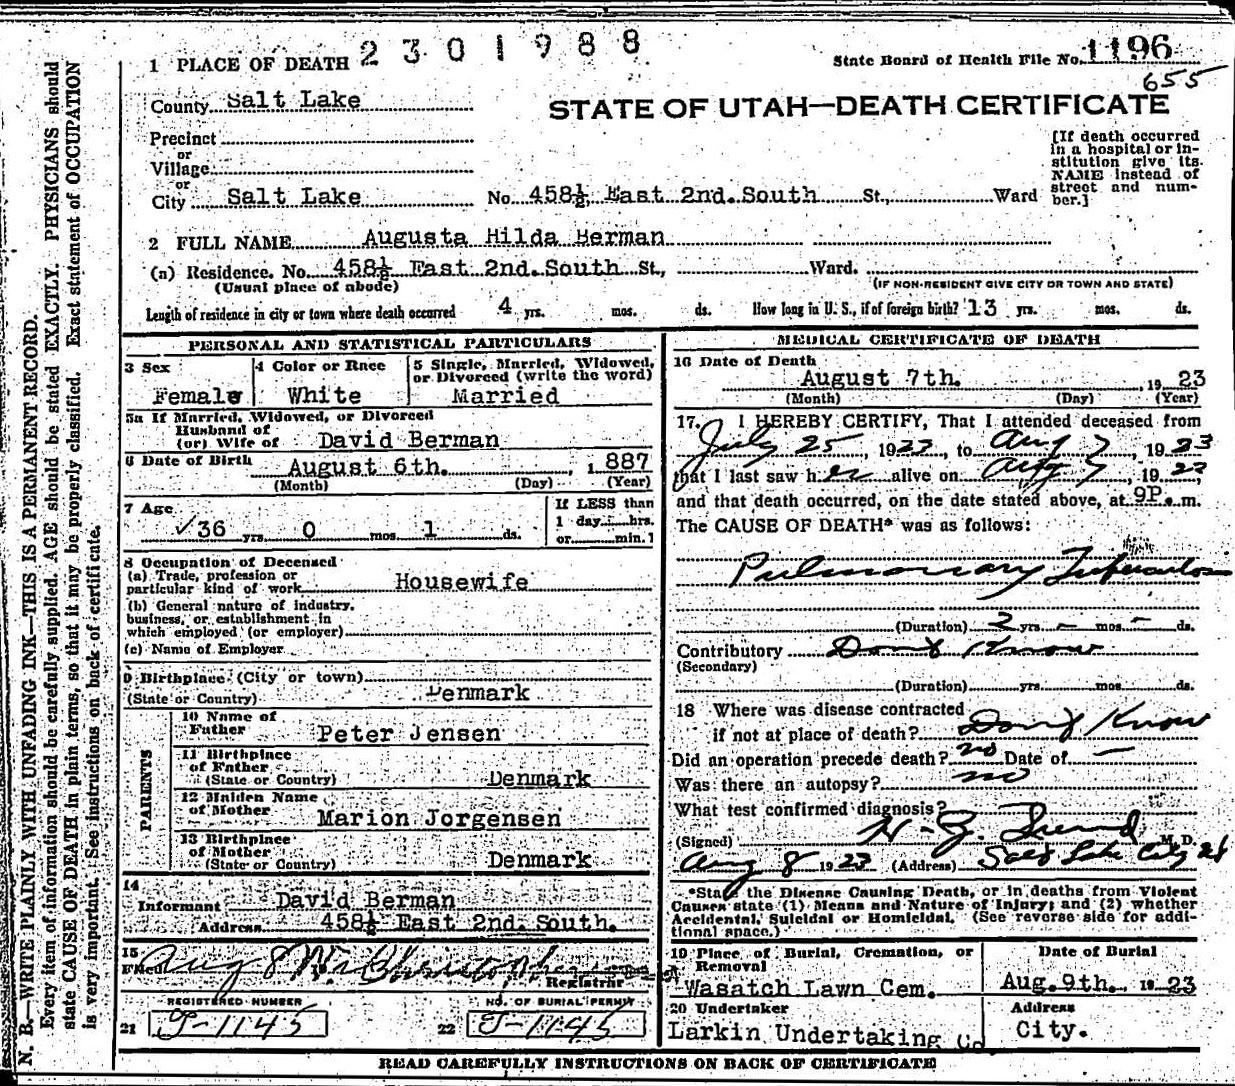 2301988
1 PLACE OF DEATH
State Board of Health File No. 1196
655
County Salt Lake
STATE OF UTAH—DEATH CERTIFICATE
Precinct
or
Village
or
City Salt Lake No. 458½ East 2nd. South St., Ward
[If death occurred in a hospital or institution give its NAME instead of street and number.]
2 FULL NAME Augusta Hilda Berman
(a) Residence. No. 458½ East 2nd. South St., Ward.
(Usual place of abode) (IF NON-RESIDENT GIVE CITY OR TOWN AND STATE)
Length of residence in city or town where death occurred 4 yrs. mos. ds. How long in U. S., if of foreign birth? 13 yrs. mos. ds.
PERSONAL AND STATISTICAL PARTICULARS
3 Sex Female
4 Color or Race White
5 Single, Married, Widowed, or Divorced (write the word) Married
5a If Married, Widowed, or Divorced
Husband of
(or) Wife of David Berman
6 Date of Birth August 6th. , 1887
(Month) (Day) (Year)
7 Age
36 yrs. 0 mos. 1 ds.
If LESS than
1 day hrs.
or min.
8 Occupation of Deceased
(a) Trade, profession or
particular kind of work Housewife
(b) General nature of industry,
business, or establishment in
which employed (or employer)
(c) Name of Employer
9 Birthplace (City or town)
(State or Country) Denmark
PARENTS
10 Name of
Father Peter Jensen
11 Birthplace
of Father
(State or Country) Denmark
12 Maiden Name
of Mother Marion Jorgensen
13 Birthplace
of Mother
(State or Country) Denmark
14
Informant David Berman
Address 458½ East 2nd. South.
15
Filed Aug 8
Registrar
REGISTERED NUMBER NO. OF BURIAL PERMIT
21 J-1145 22 J-1145
MEDICAL CERTIFICATE OF DEATH
16 Date of Death
August 7th. , 1923
(Month) (Day) (Year)
17. I HEREBY CERTIFY, That I attended deceased from
July 25, 1923, to Aug 7, 1923
that I last saw her alive on Aug 7, 1923,
and that death occurred, on the date stated above, at 9P. m.
The CAUSE OF DEATH* was as follows:
Pulmonary Tuberculosis
(Duration) 2 yrs. – mos. – ds.
Contributory Don't Know
(Secondary)
(Duration) yrs. mos. ds.
18 Where was disease contracted
if not at place of death? Don't Know
Did an operation precede death? no Date of —
Was there an autopsy? no
What test confirmed diagnosis?
(Signed) M. D.
Aug 8 1923 (Address) Salt Lake City Ut
*State the Disease Causing Death, or in deaths from Violent
Causes state (1) Means and Nature of Injury; and (2) whether
Accidental, Suicidal or Homicidal. (See reverse side for addi-
tional space.)
19 Place of Burial, Cremation, or
Removal
Wasatch Lawn Cem.
Date of Burial
Aug. 9th. 1923
20 Undertaker
Larkin Undertaking Co
Address
City.
READ CAREFULLY INSTRUCTIONS ON BACK OF CERTIFICATE
N. B.—WRITE PLAINLY WITH UNFADING INK—THIS IS A PERMANENT RECORD.
Every item of information should be carefully supplied. AGE should be stated EXACTLY. PHYSICIANS should
state CAUSE OF DEATH in plain terms, so that it may be properly classified. Exact statement of OCCUPATION
is very important. See instructions on back of certificate.